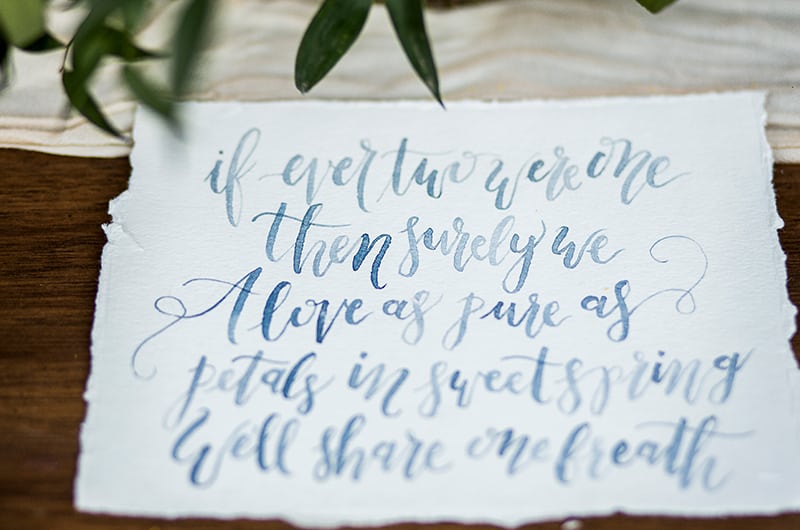 if ever two were one
then surely we
A love as pure as
petals in sweet spring
We'll share one breath